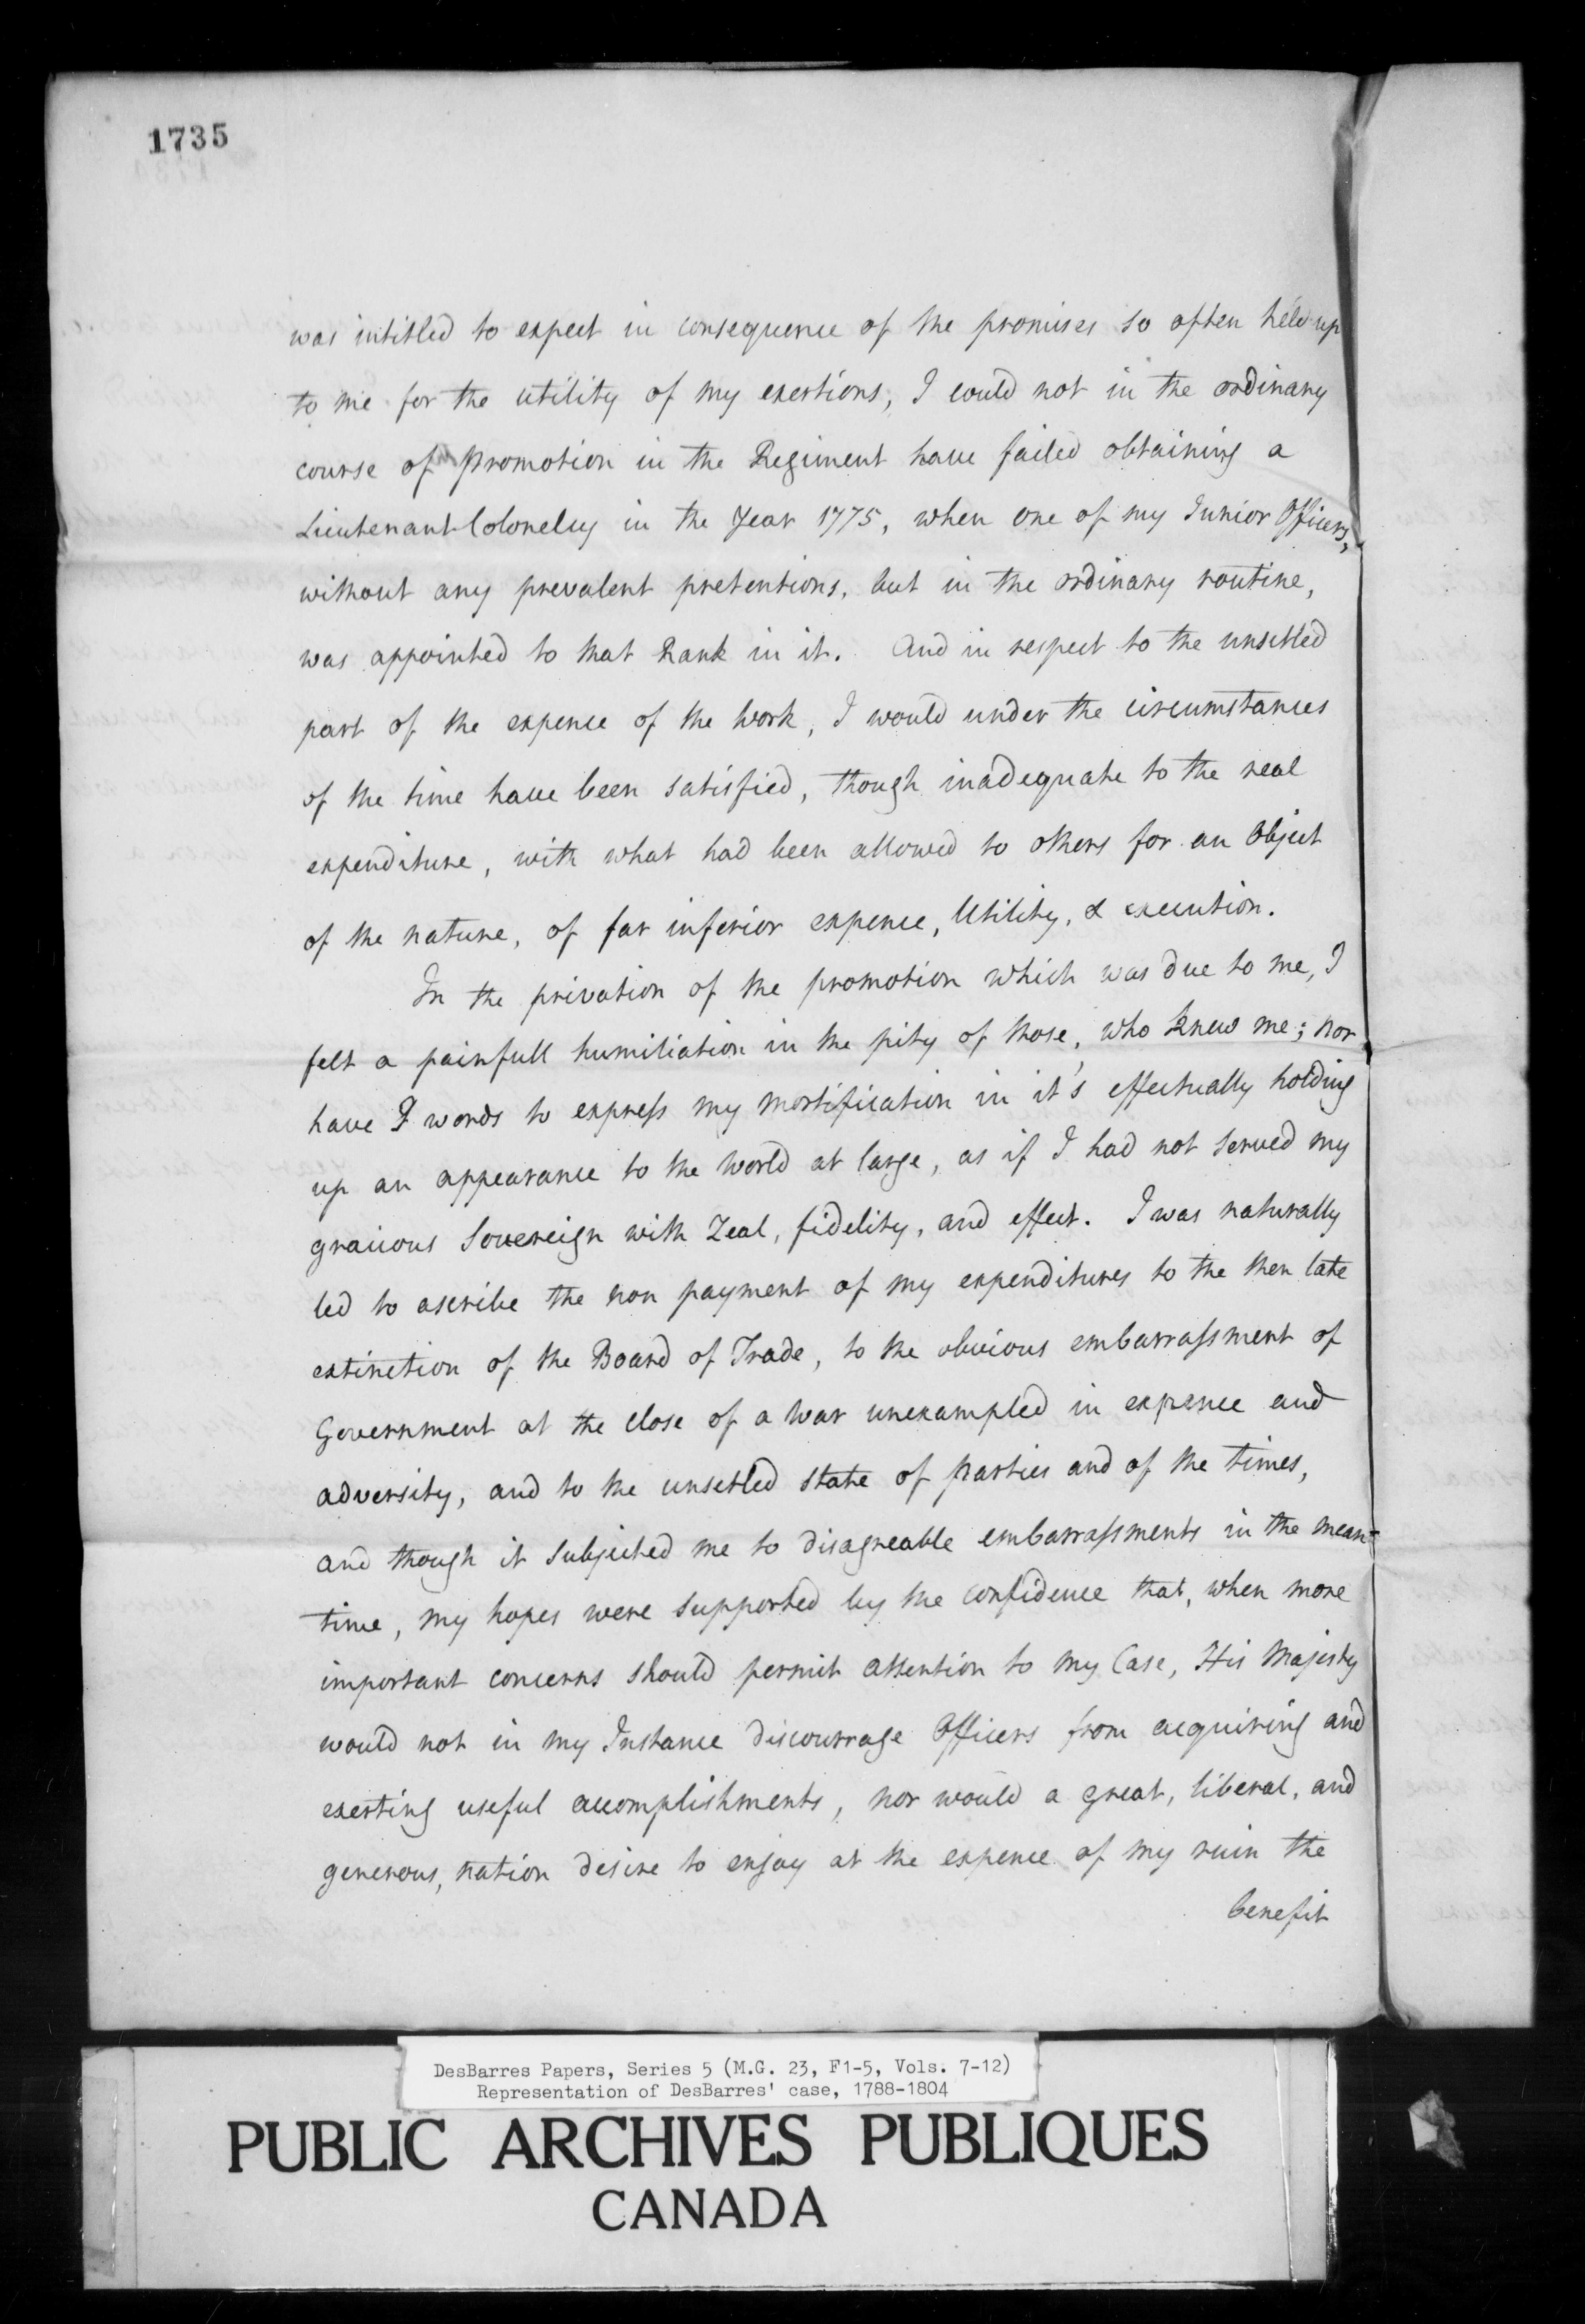 1735
was intitled to expect in consequence of the promises so often held up
to me for the utility of my exertions, I could not in the ordinary
course of promotion in the Regiment have failed obtaining a
Lieutenant Colonelcy in the Year 1775, when one of my Junior Officers,
without any prevalent pretentions, but in the ordinary routine,
was appointed to that Rank in it. And in respect to the unsetled
part of the expence of the Work, I would under the circumstances
of the time have been satisfied, though inadequate to the real
expenditure, with what had been allowed to others for an Object
of the nature, of far inferior expence, Utility, & execution.
In the privation of the promotion which was due to me, I
felt a painfull humiliation in the pity of those, who knew me; nor
have I words to express my mortification in it's effectually holding
up an appearance to the World at large, as if I had not served my
gracious Sovereign with Zeal, fidelity, and effect. I was naturally
led to ascribe the non payment of my expenditures to the then late
extinction of the Board of Trade, to the obvious embarrassment of
Government at the close of a War unexampled in expence and
adversity, and to the unsetled state of parties and of the times,
and though it subjected me to disagreable embarrassments in the mean=
time, my hopes were supported by the confidence that, when more
important concerns should permit attention to my Case, His Majesty
would not in my Instance discourrage Officers from acquiring and
exerting useful accomplishments, nor would a great, liberal, and
generous, nation desire to enjoy at the expence of my ruin the
benefit
DesBarres Papers, Series 5 (M.G. 23, F1-5, Vols. 7-12)
Representation of DesBarres' case, 1788-1804
PUBLIC ARCHIVES PUBLIQUES
CANADA